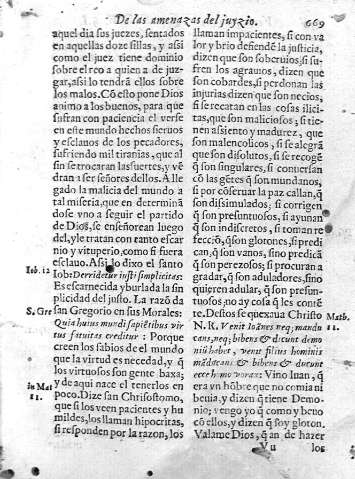 De las amenazas del juyzio. 669
aquel dia sus juezes, sentados
en aquellas doze sillas, y assi
como el juez tiene dominio
sobre el reo a quien a de juz-
gar, assi lo tendrã ellos sobre
los malos. Cõ esto pone Dios
animo a los buenos, para que
sufran con paciencia el verse
en este mundo hechos sieruos
y esclauos de los pecadores,
sufriendo mil tiranias, que al
fin se trocaran las suertes, y vẽ
dran a ser señores dellos. A lle
gado la malicia del mundo a
tal miseria, que en determinã
dose vno a seguir el partido
de Dios, se enseñorean luego
del, y le tratan con tanto escar
nio y vituperio, como si fuera
esclauo. Assi lo dixo el santo
Iob. 12 Iob: Deridetur iusti simplicitas:
Es escarnecida y burlada la sin
plicidad del justo. La razõ da
S. Gre san Gregorio en sus Morales:
Quia huius mundi sapiẽtibus vir
tus fatuitas creditur: Porque
creen los sabios de el mundo
que la virtud es necedad, y q̃
los virtuosos son gente baxa;
y de aqui nace el tenerlos en
in Mat poco. Dize san Chrisostomo,
11. que si los veen pacientes y hu
mildes, los llaman hipocritas,
si responden por la razon, los
llaman impacientes, si con va
lor y brio defiendẽ la justicia,
dizen que son soberuios; si su-
fren los agrauios, dizen que
son cobardes, si perdonan las
injurias dizen que son necios,
si se recatan en las cosas ilici-
tas, que son maliciosos; si tie-
nen assiento y madurez, que
son malencolicos, si se alegrã
que son disolutos, si se recogẽ
q̃ son singulares, si conuersan
cõ las gẽtes q̃ son mundanos,
si por cõseruar la paz callan, q̃
son dissimulados; si corrigen
q̃ son presuntuosos, si ayunan
q̃ son indiscretos, si toman re
feccиõ, q̃ son glotones, si predi
can, q̃ son vanos, sino predicã
q̃ son perezosos; si procuran a
gradar, q̃ son aduladores, sino
quieren adular, q̃ son presun-
tuosos; no ay cosa q̃ les contẽ
te. Destos se quexaua Christo Math.
N. R. Venit Ioãnes neq; mandu 11.
cans, neq; bibens & dicunt demo
niũ habet, venit filius hominis
mãducans & bibens & dicunt
ecce homo vorax: Vino Iuan, q̃
era vn hõbre que no comia ni
beuia, y dizen q̃ tiene Demo-
nio; vengo yo q̃ como y beuo
cõ ellos, y dizen q̃ soy gloton.
Valame Dios, q̃ an de hazer
Vu los